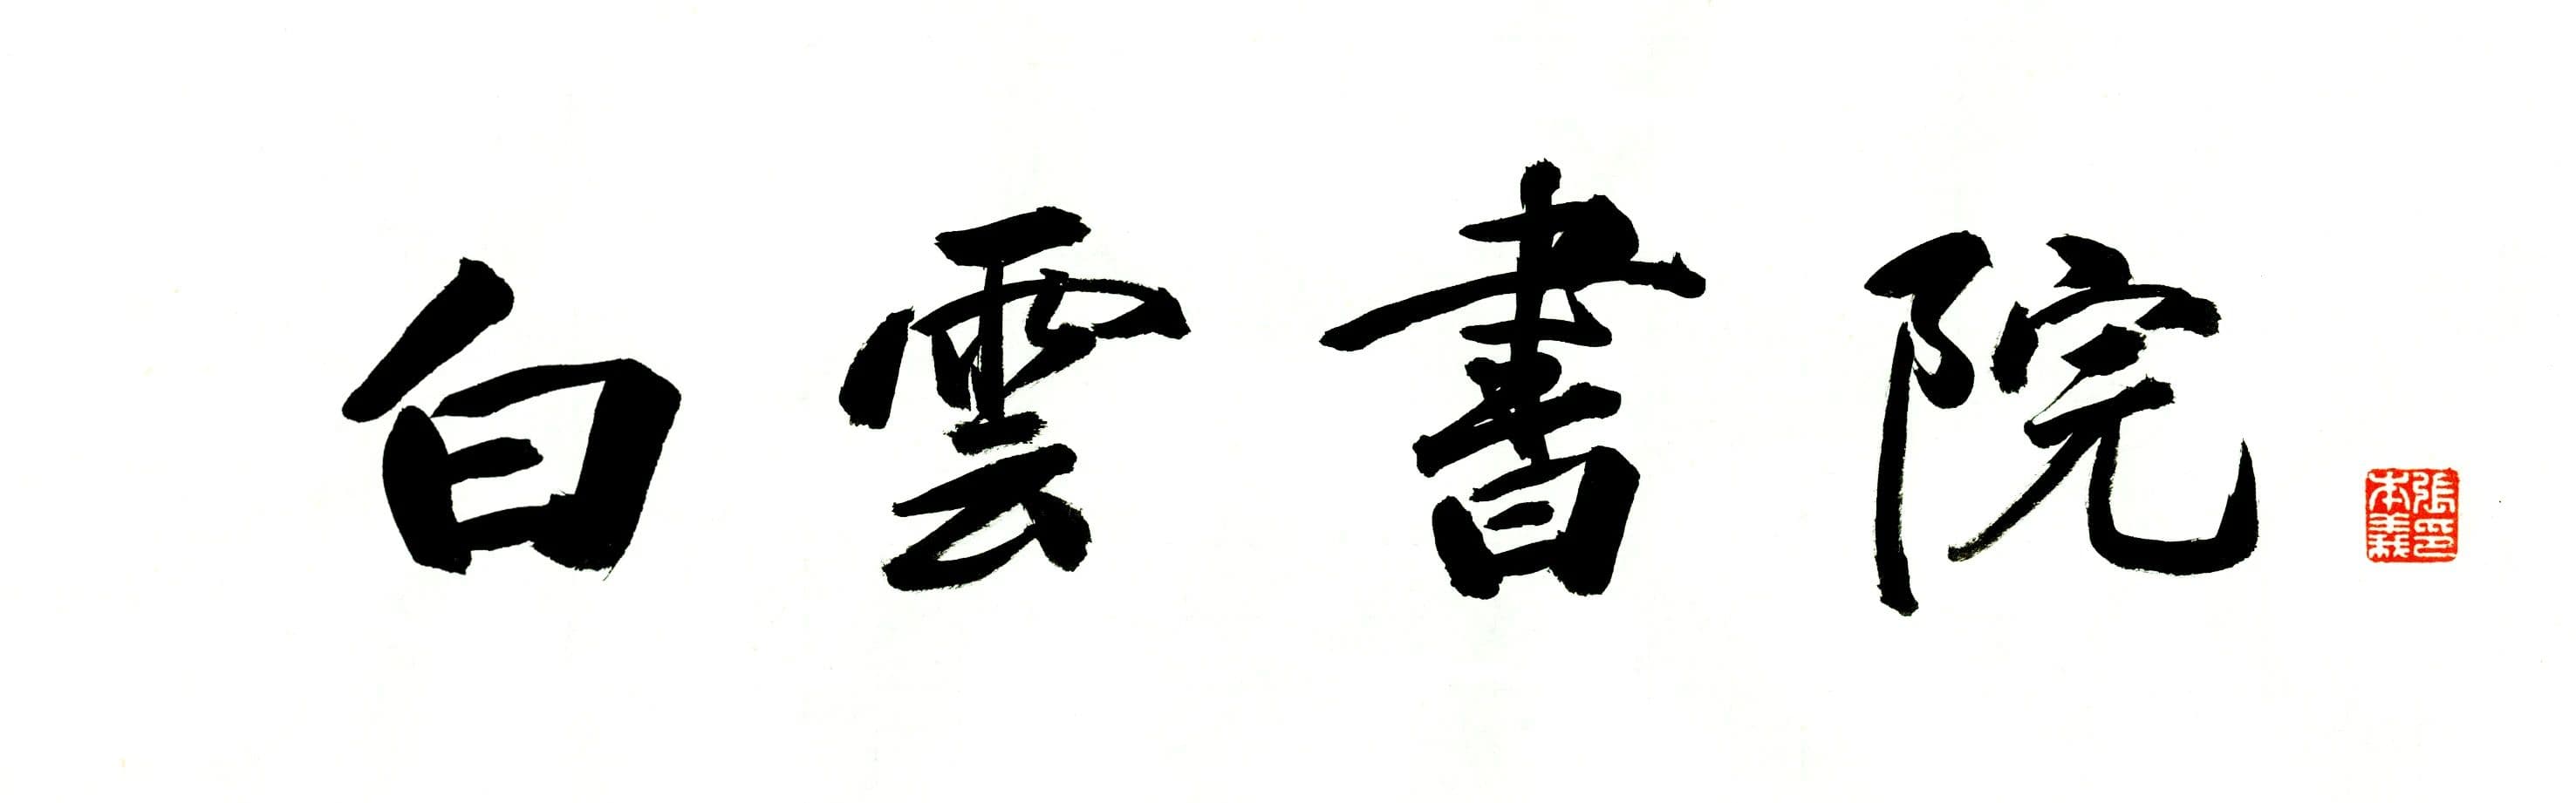 白雲書院
張印本義